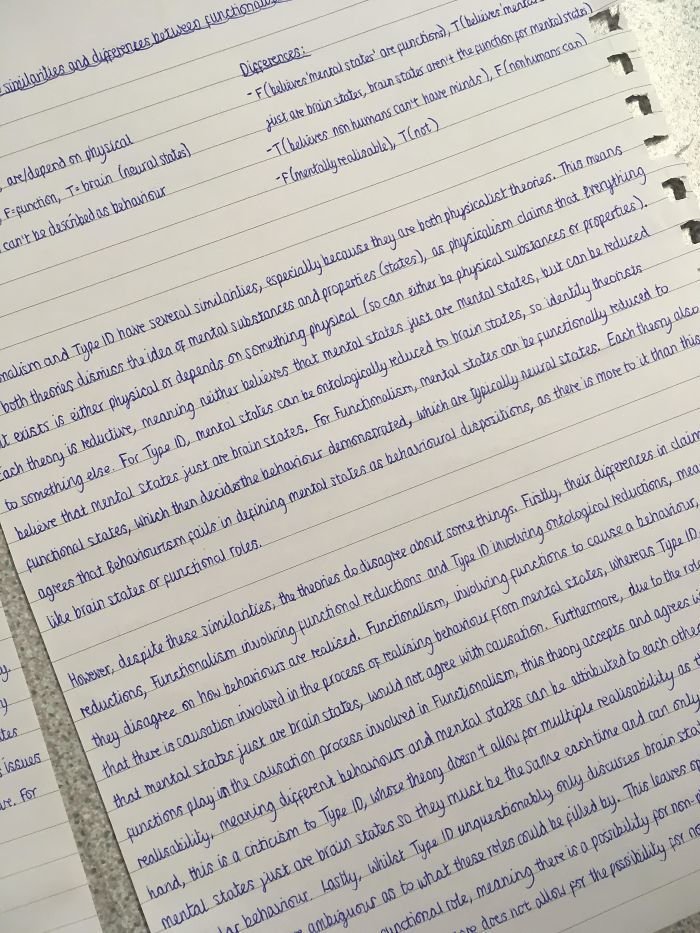 similarities and differences between functional
Differences:
- F(believes 'mental states' are functions), T(believes 'mental
just are brain states, brain states aren't the function for mental state)
- T(believes non humans can't have minds), F(non humans can)
- F(mentally realisable), T(not)
are/depend on physical
F=function, T= brain (neural states)
can't be described as behaviour
nalism and Type ID have several similarities, especially because they are both physicalist theories. This means
both theories dismiss the idea of mental substances and properties (states), as physicalism claims that everything
t exists is either physical or depends on something physical (so can either be physical substances or properties).
Each theory is reductive, meaning neither believes that mental states just are mental states, but can be reduced
to something else. For Type ID, mental states can be ontologically reduced to brain states, so identity theorists
believe that mental states just are brain states. For Functionalism, mental states can be functionally reduced to
functional states, which then decides the behaviour demonstrated, which are typically neural states. Each theory also
agrees that Behaviourism fails in defining mental states as behavioural dispositions, as there is more to it than this
like brain states or functional roles.
However, despite these similarities, the theories do disagree about some things. Firstly, their differences in claim
reductions, Functionalism involving functional reductions and Type ID involving ontological reductions, mea
they disagree on how behaviours are realised. Functionalism, involving functions to cause a behaviour,
that there is causation involved in the process of realising behaviour from mental states, whereas Type ID
that mental states just are brain states, would not agree with causation. Furthermore, due to the role
functions play in the causation process involved in Functionalism, this theory accepts and agrees wi
realisability, meaning different behaviours and mental states can be attributed to each other
hand, this is a criticism to Type ID, whose theory doesn't allow for multiple realisability as th
mental states just are brain states so they must be the same each time and can only
behaviour. Lastly, whilst Type ID unquestionably only discusses brain sta
ambiguous as to what these roles could be filled by. This leaves op
unctional role, meaning there is a possibility for non-
does not allow for the possibility for no
issues
ve. For